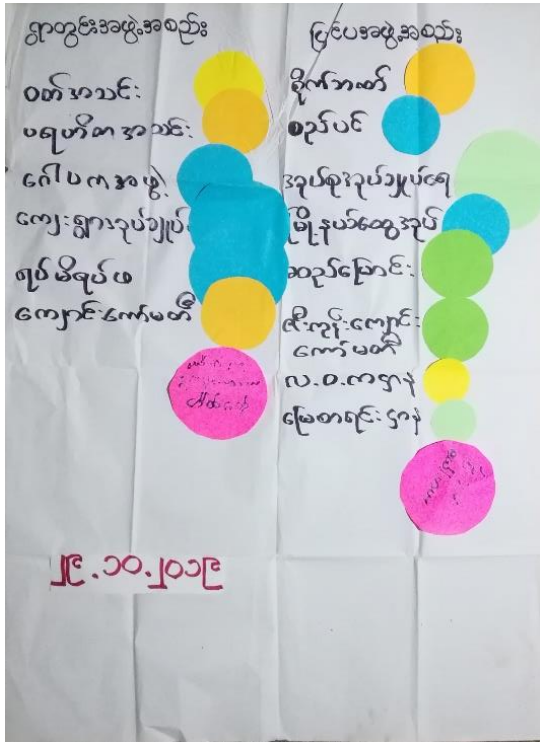 ရွာတွင်းအဖွဲ့အစည်း
ဝတ်အသင်း
ပရဟိတအသင်း
ဂေါပကအဖွဲ့
ကျေးရွာအုပ်ချုပ်
ရပ်မိရပ်ဖ
ကျောင်းကော်မတီ
ပြင်ပအဖွဲ့အစည်း
စိုက်ဘဏ်
စည်ပင်
အုပ်စုအုပ်ချုပ်ရေး
မြို့နယ်ထွေအုပ်
ဆည်မြောင်း
ဇီးကုန်းကျောင်း
ကော်မတီ
လ.ဝ.ကဌာန
မြေစာရင်းဌာန